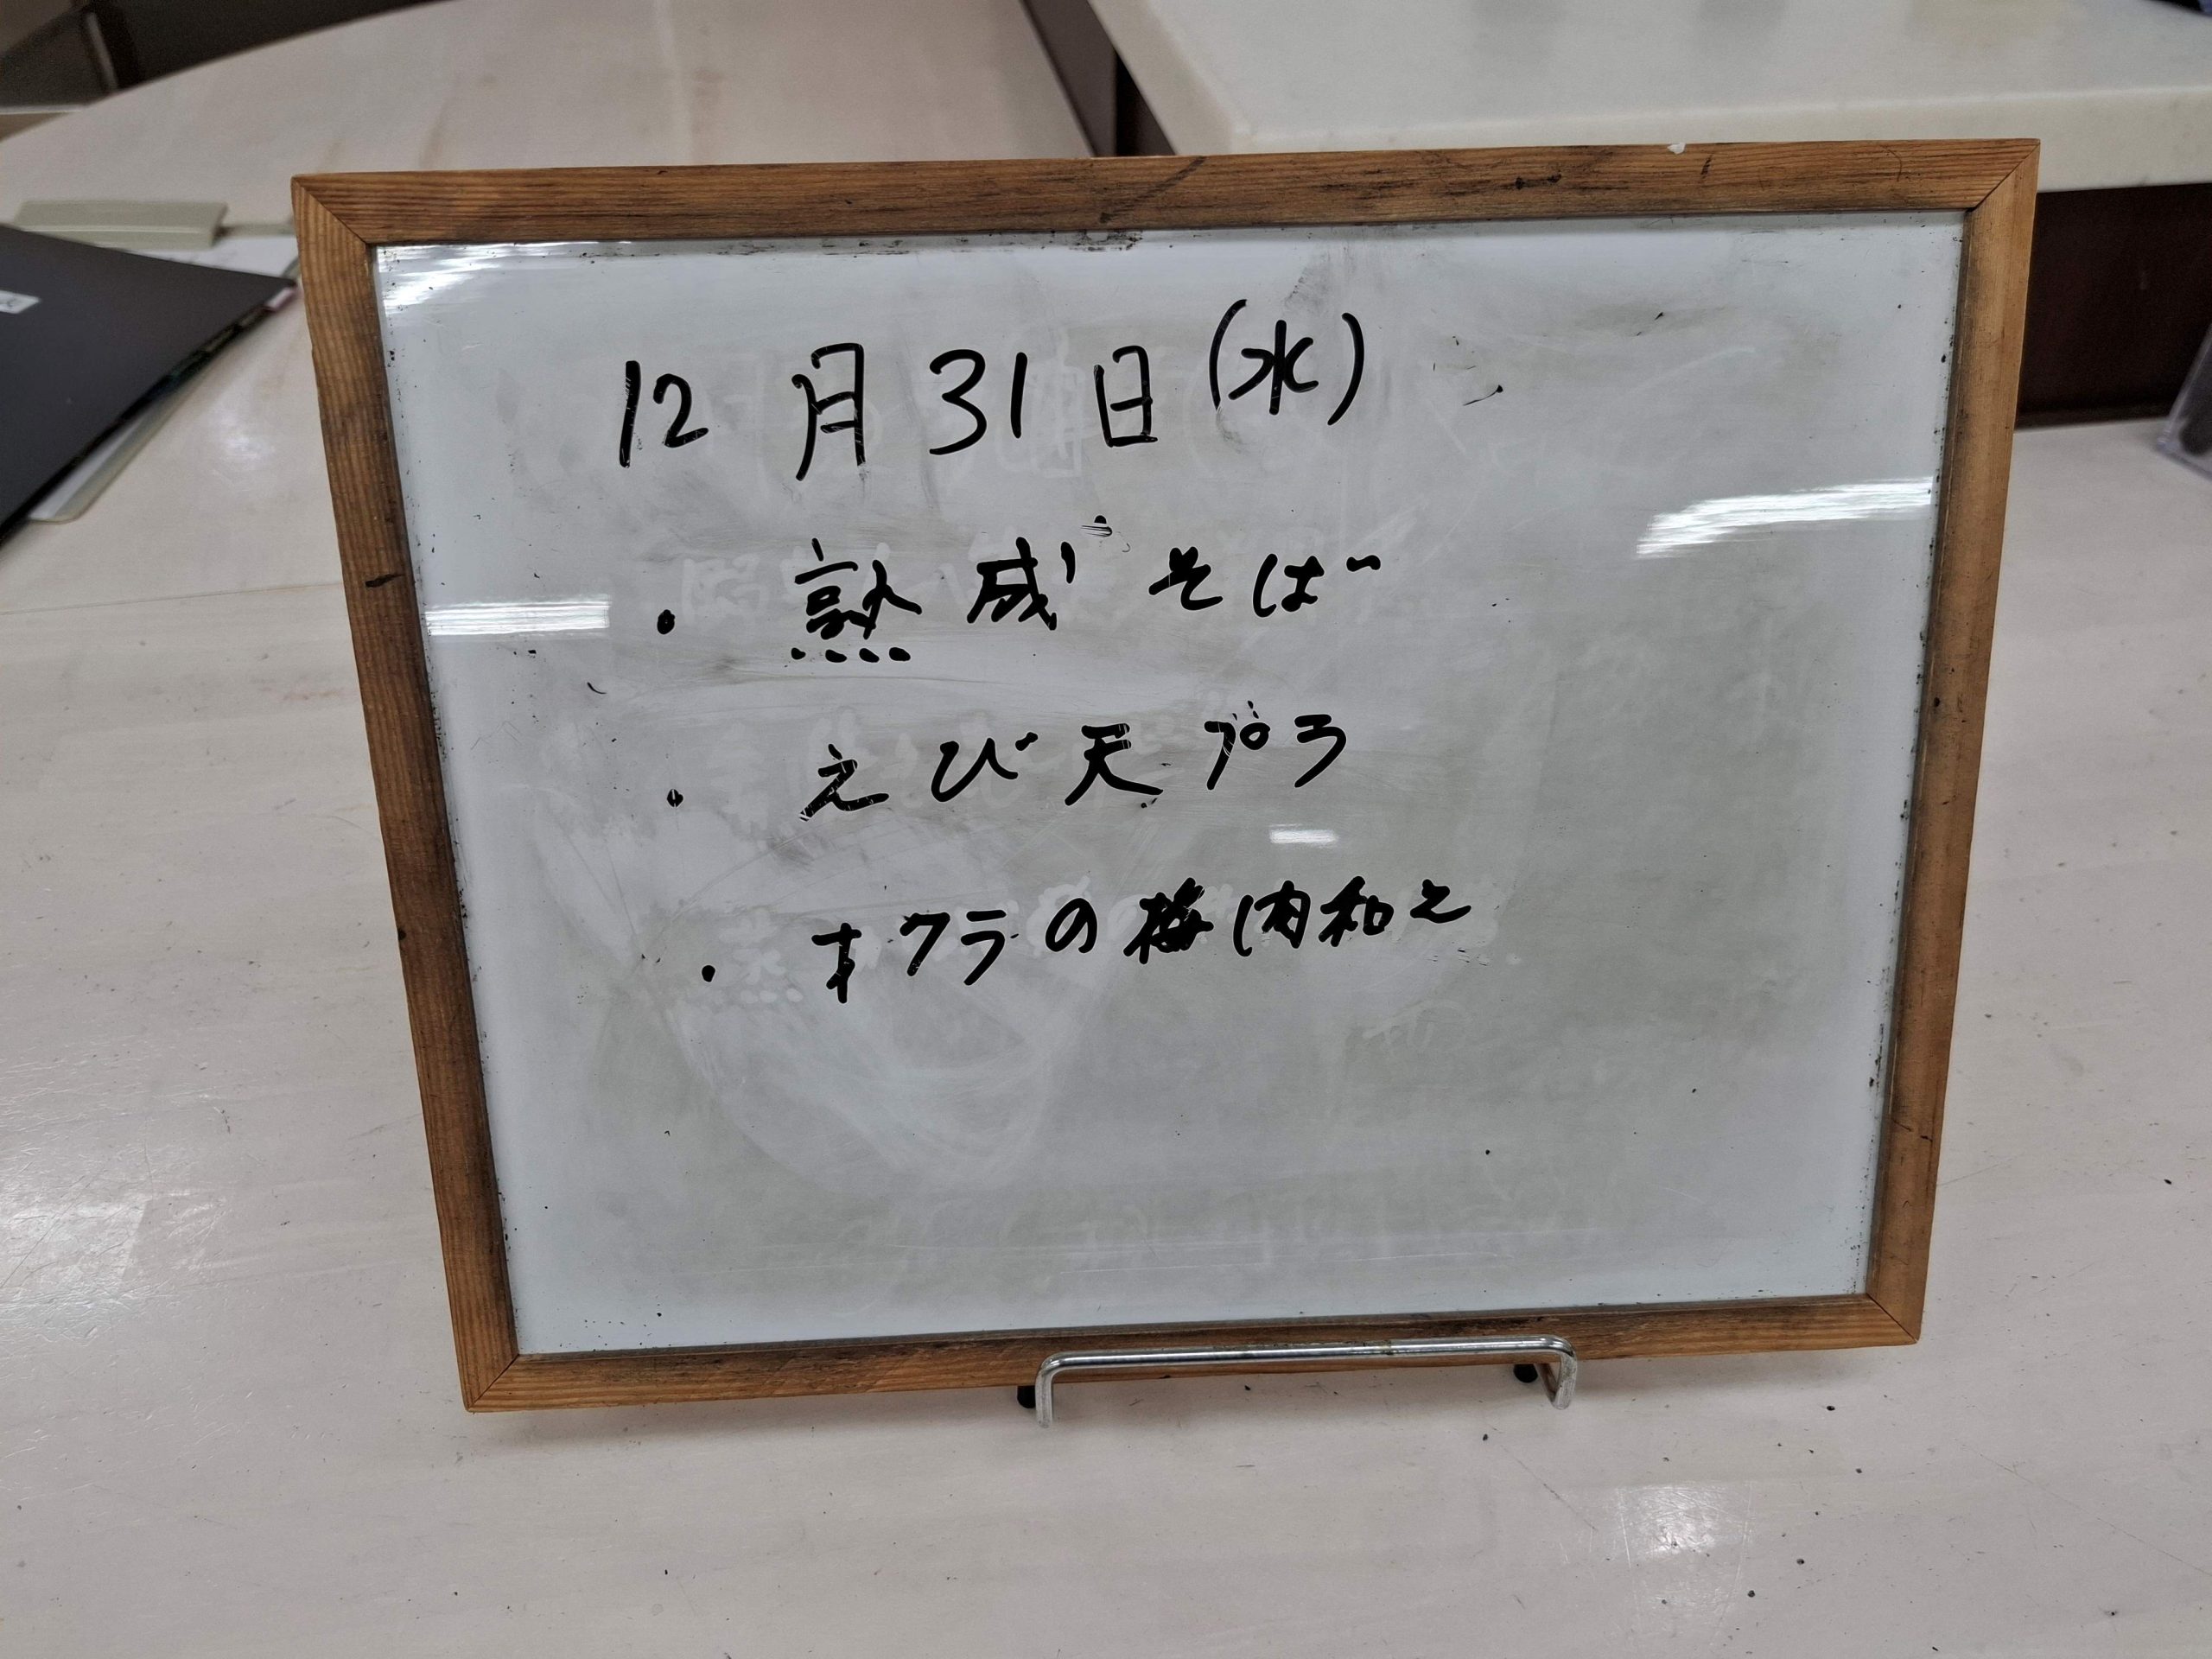 12月31日(水)
・熟成そば
・えび天プラ
・オクラの梅肉和え